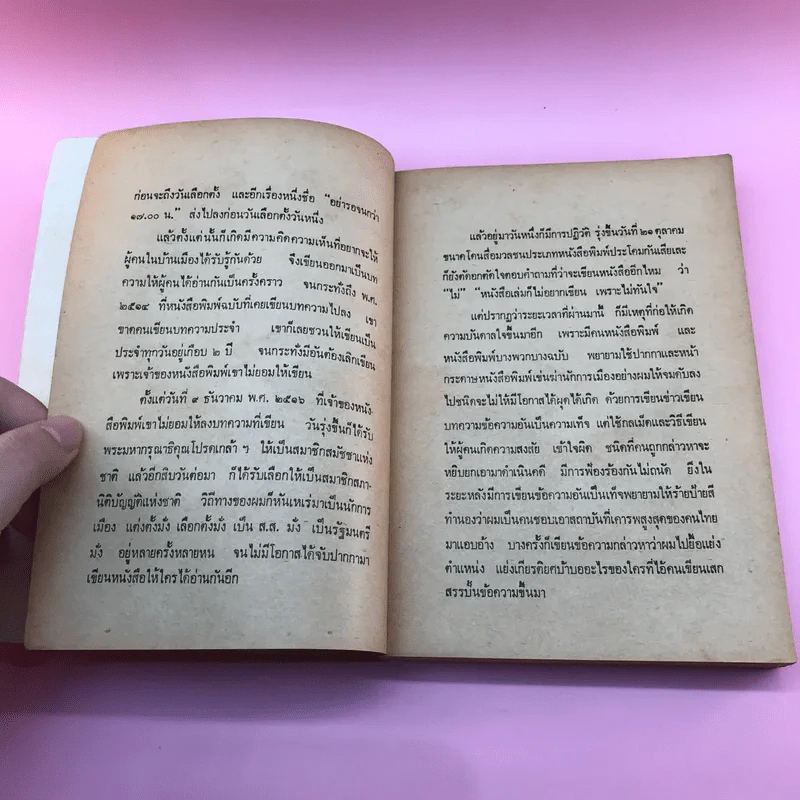 ก่อนจะถึงวันเลือกตั้ง และอีกเรื่องหนึ่งชื่อ "อย่ารอจนกว่า
๑๗.๐๐ น." ส่งไปลงก่อนวันเลือกตั้งวันหนึ่ง
แล้วตั้งแต่นั้นก็เกิดมีความคิดความเห็นที่อยากจะให้
ผู้คนในบ้านเมืองได้รับรู้กันด้วย จึงเขียนออกมาเป็นบท
ความให้ผู้คนได้อ่านกันเป็นครั้งคราว จนกระทั่งถึง พ.ศ.
๒๕๑๔ ที่หนังสือพิมพ์ฉบับที่เคยเขียนบทความไปลง เขา
ขาดคนเขียนบทความประจำ เขาก็เลยชวนให้เขียนเป็น
ประจำทุกวันอยู่เกือบ ๒ ปี จนกระทั่งมีอันต้องเลิกเขียน
เพราะเจ้าของหนังสือพิมพ์เขาไม่ยอมให้เขียน
ตั้งแต่วันที่ ๙ ธันวาคม พ.ศ. ๒๕๑๖ ที่เจ้าของหนัง-
สือพิมพ์เขาไม่ยอมให้ลงบทความที่เขียน วันรุ่งขึ้นก็ได้รับ
พระมหากรุณาธิคุณโปรดเกล้า ฯ ให้เป็นสมาชิกสมัชชาแห่ง
ชาติ แล้วอีกสิบวันต่อมา ก็ได้รับเลือกให้เป็นสมาชิกสภา-
นิติบัญญัติแห่งชาติ วิถีทางของผมก็หันเหเร่มาเป็นนักการ
เมือง แต่งตั้งมั่ง เลือกตั้งมั่ง เป็น ส.ส. มั่ง เป็นรัฐมนตรี
มั่ง อยู่หลายครั้งหลายหน จนไม่มีโอกาสได้จับปากกามา
เขียนหนังสือให้ใครได้อ่านกันอีก
แล้วอยู่มาวันหนึ่งก็มีการปฏิวัติ รุ่งขึ้นวันที่ ๒๑ ตุลาคม
ขนาดโดนสื่อมวลชนประเภทหนังสือพิมพ์ประโคมกันเสียเละ
ก็ยังตัดอกตัดใจตอบคำถามที่ว่าจะเขียนหนังสืออีกไหม ว่า
"ไม่" "หนังสือเล่มก็ไม่อยากเขียน เพราะไม่ทันใจ"
แต่ปรากฏว่าระยะเวลาที่ผ่านมานี้ ก็มีเหตุที่ก่อให้เกิด
ความบันดาลใจขึ้นมาอีก เพราะมีคนหนังสือพิมพ์ และ
หนังสือพิมพ์บางพวกบางฉบับ พยายามใช้ปากกาและหน้า
กระดาษหนังสือพิมพ์เข่นฆ่านักการเมืองอย่างผมให้จมดับลง
ไปชนิดจะไม่ให้มีโอกาสได้ผุดได้เกิด ด้วยการเขียนข่าวเขียน
บทความข้อความอันเป็นความเท็จ แต่ใช้กลเม็ดและวิธีเขียน
ให้ผู้คนเกิดความสงสัย เข้าใจผิด ชนิดที่คนถูกกล่าวหาจะ
หยิบยกเอามาดำเนินคดี มีการฟ้องร้องกันไม่ถนัด ยิ่งใน
ระยะหลังมีการเขียนข้อความอันเป็นเท็จพยายามให้ร้ายป้ายสี
ทำนองว่าผมเป็นคนชอบเอาสถาบันที่เคารพสูงสุดของคนไทย
มาแอบอ้าง บางครั้งก็เขียนข้อความกล่าวหาว่าผมไปยื้อแย่ง
ตำแหน่ง แย่งเกียรติยศบ้าบออะไรของใครที่ไอ้คนเขียนเสก
สรรปั้นข้อความขึ้นมา